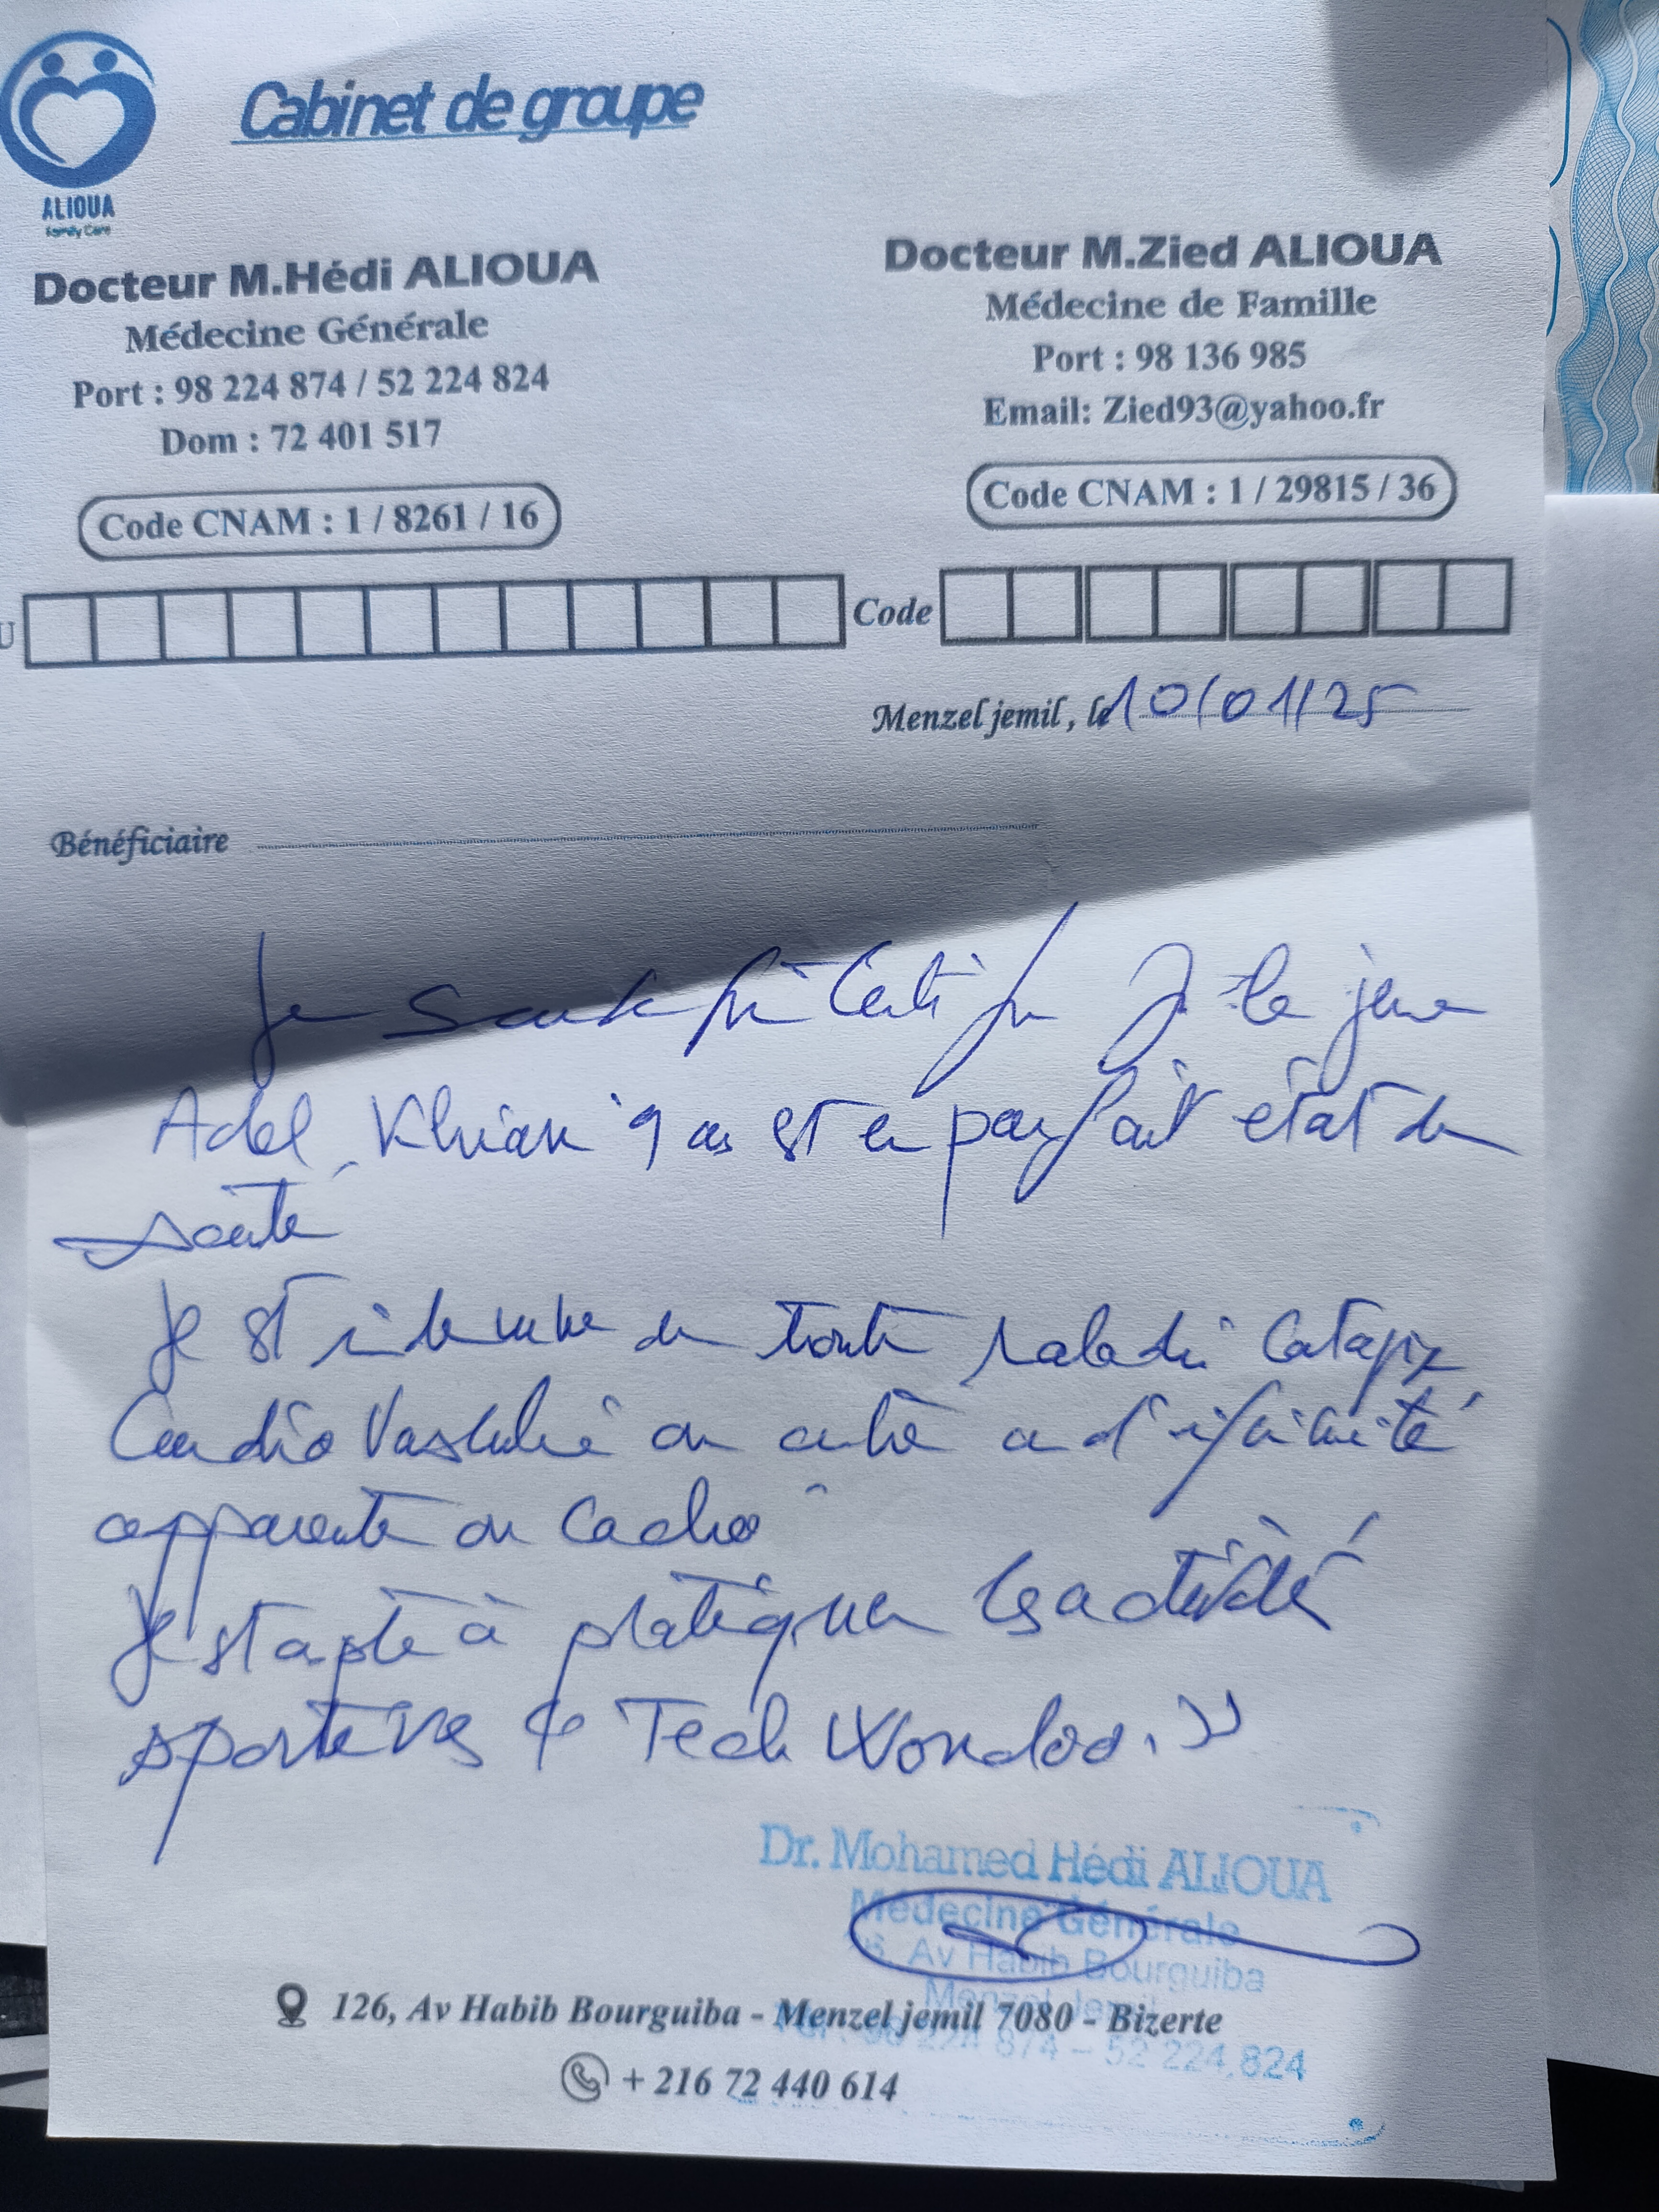 ALIOUA
Family Care
Cabinet de groupe
Docteur M.Hédi ALIOUA
Médecine Générale
Port : 98 224 874 / 52 224 824
Dom : 72 401 517
Code CNAM : 1 / 8261 / 16
Docteur M.Zied ALIOUA
Médecine de Famille
Port : 98 136 985
Email: Zied93@yahoo.fr
Code CNAM : 1 / 29815 / 36
U
Code
Menzel jemil, le 10/01/25
Bénéficiaire
Je certifie le jeune
Adel 9 ans est en parfait état de
santé
Il est indemne de toute maladie
Cardio Vasculaire ou autre ou d'infirmité
apparente ou cachée
Il est apte à pratiquer les activités
sportives « Tech Wondoo. »
Dr. Mohamed Hédi ALIOUA
Médecine Générale
Av Habib Bourguiba
Menzel Jemil
98 224 874 – 52 224 824
126, Av Habib Bourguiba - Menzel jemil 7080 - Bizerte
+ 216 72 440 614